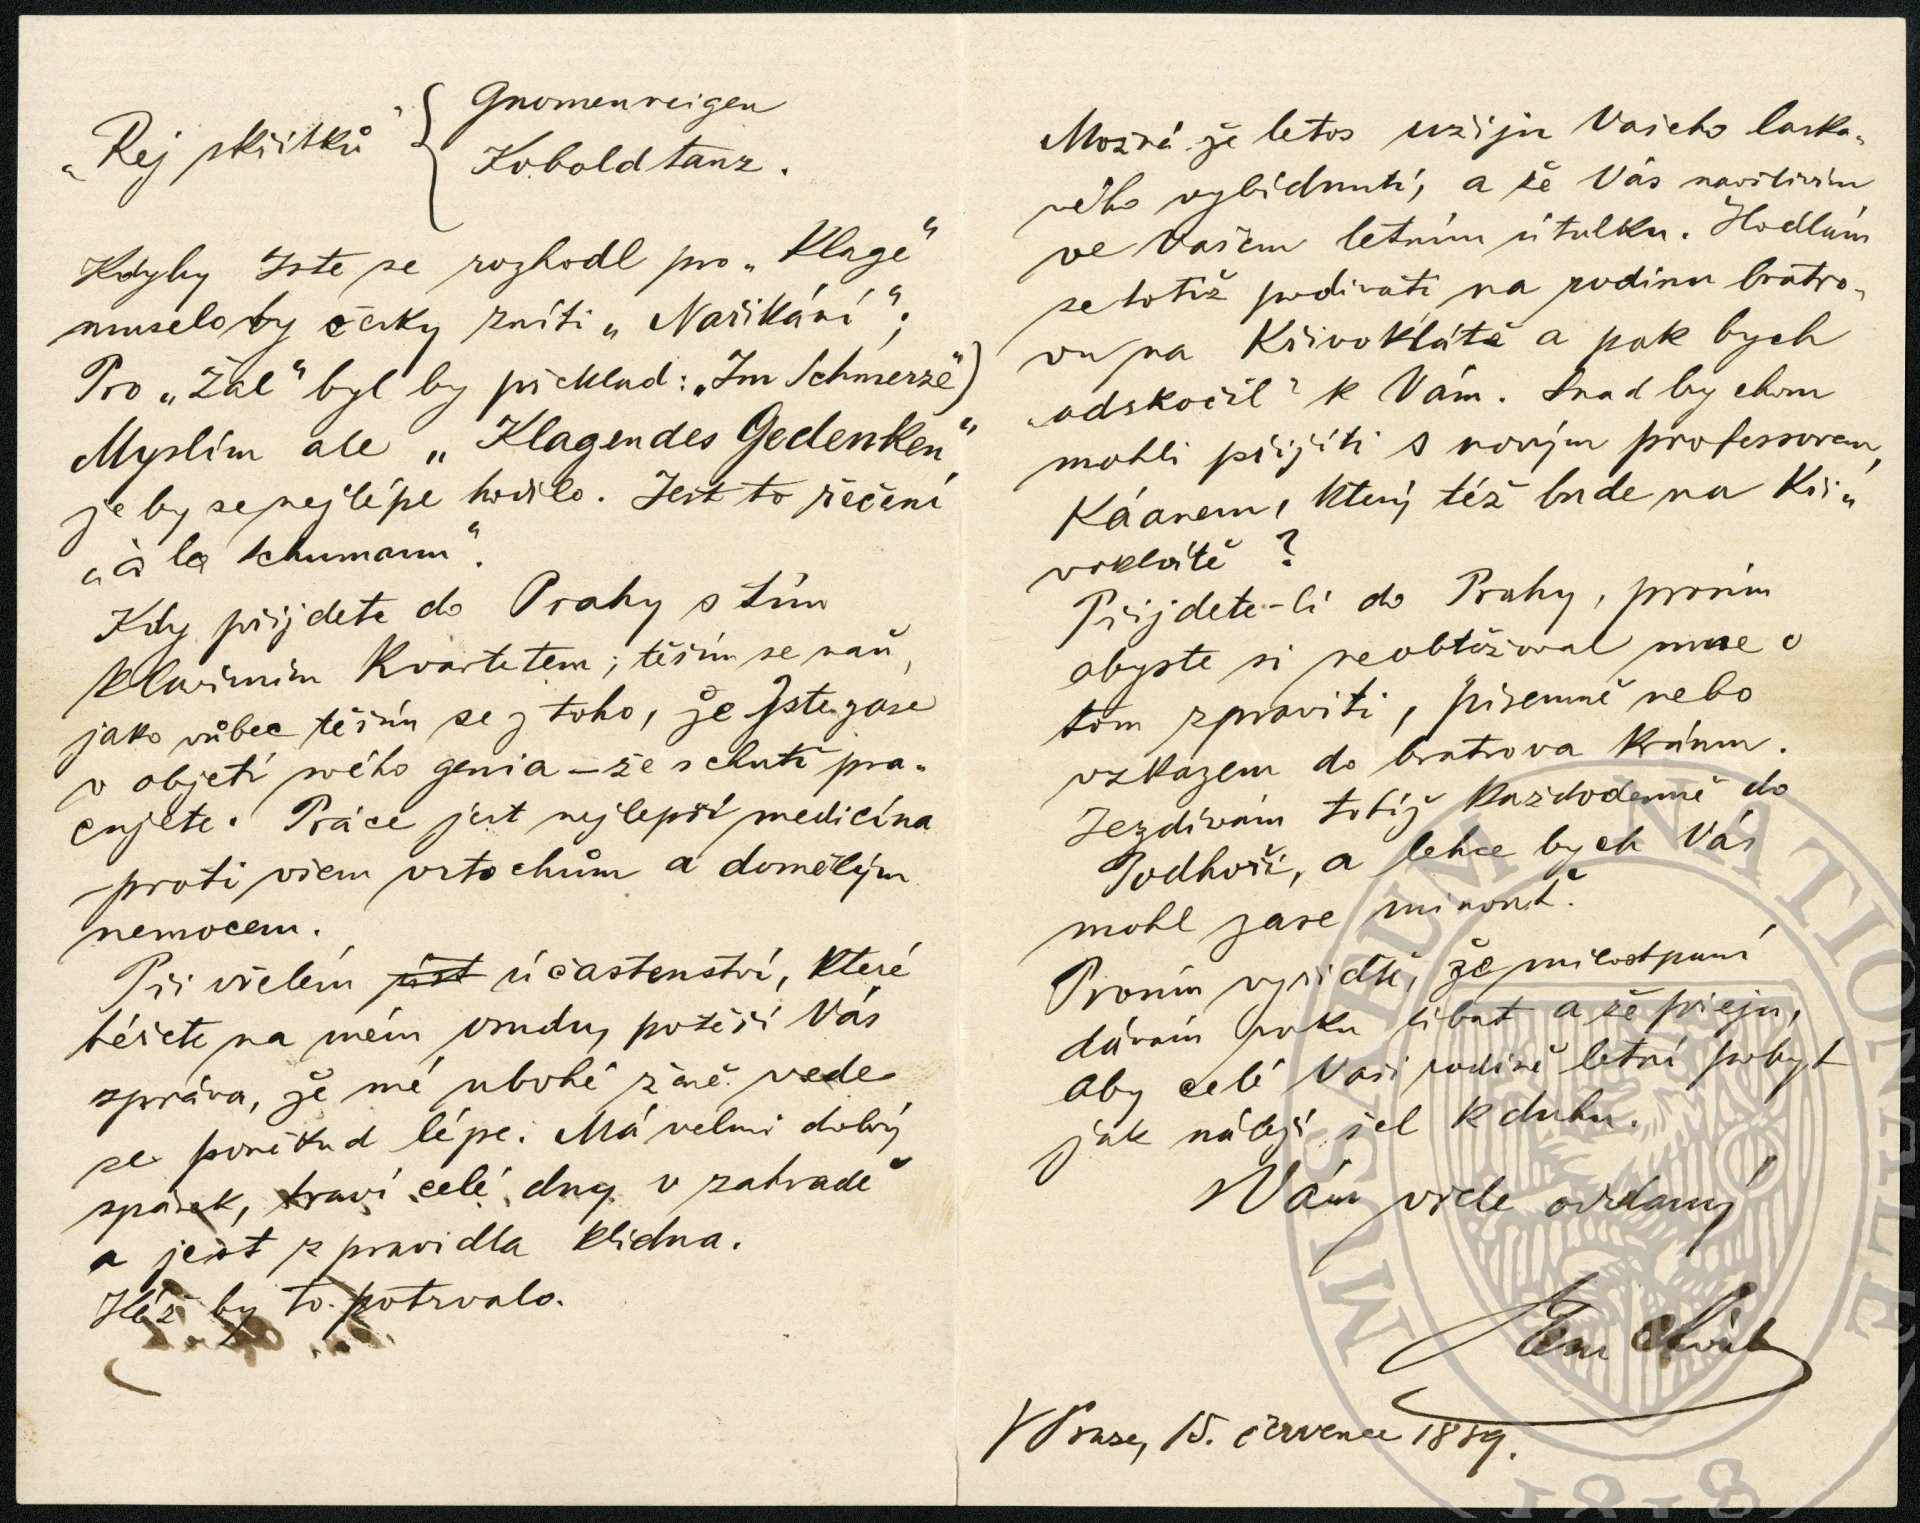 „Rej skřítků“ { Gnomenreigen
Koboldtanz.
Kdyby Jste se rozhodl pro „Klage“
muselo by česky zníti „Naříkání“;
Pro „Žal“ byl by překlad: „Im Schmerze“)
Myslím ale „Klagendes Gedenken“
je by se nejlépe hodilo. Jest to řečení
„à la Schumann“.
Kdy přijdete do Prahy s tím
klavirním kvartetem; těším se naň,
jako vůbec těším se z toho, že Jste zase
v objetí svého genia – že s chutí pra-
cujete. Práce jest nejlepší medicína
proti všem vrtochům a domělým
nemocem.
Při vřelém účastenství, které
béřete na mém osudu, potěší Vás
zpráva, že mé ubohé ženě vede
se poněkud lépe. Má velmi dobrý
spánek, tráví celé dny v zahradě
a jest z pravidla klidna.
Kéž by to potrvalo.
Možná že letos užiju Vašeho laska-
vého vybídnutí, a že Vás navštivím
ve Vašem letním útulku. Hodlám
se totiž podívati na rodinu bratro-
vu na Křivoklátě a pak bych
„odskočil“ k Vám. Snad bychom
mohli přijíti s novým professorem,
Káanem, který též bude na Kři-
voklátě?
Přijdete-li do Prahy, prosím
abyste si neobtěžoval mne o
tom zpraviti, písemně nebo
vzkazem do bratrova krámu.
Jezdívám totiž každodenně do
Podhoří, a lehce bych Vás
mohl zase minout.
Prosím vyřiďte, že milostpaní
dávám ruku líbat a že přeju,
aby celé Vaší rodině letní pobyt
jak náleží šel k duhu.
Vám vřele oddaný
V Praze, 15. července 1889.
MUSAEUM NATIONALE
1818